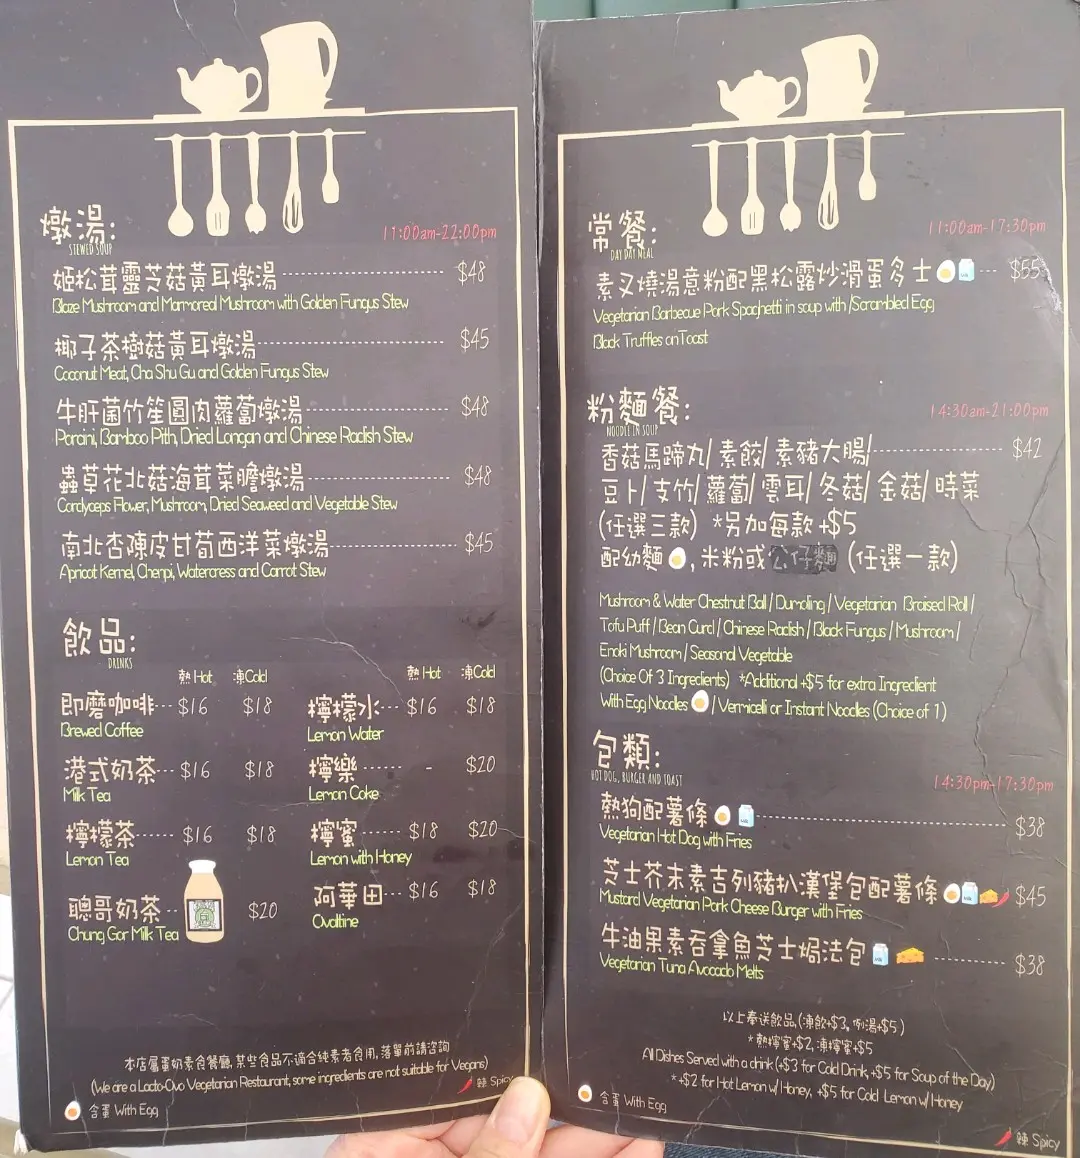 燉湯:
STEWED SOUP
11:00am-22:00pm
姬松茸靈芝菇黃耳燉湯 $48
Blaze Mushroom and Marmoreal Mushroom with Golden Fungus Stew
椰子茶樹菇黃耳燉湯 $45
Coconut Meat, Cha Shu Gu and Golden Fungus Stew
牛肝菌竹笙圓肉蘿蔔燉湯 $48
Porcini, Bamboo Pith, Dried Longan and Chinese Radish Stew
蟲草花北菇海茸菜膽燉湯 $48
Cordyceps Flower, Mushroom, Dried Seaweed and Vegetable Stew
南北杏陳皮甘荀西洋菜燉湯 $45
Apricot Kernel, Chenpi, Watercress and Carrot Stew
飲品:
DRINKS
熱Hot 凍Cold 熱Hot 凍Cold
即磨咖啡 $16 $18 檸檬水 $16 $18
Brewed Coffee Lemon Water
港式奶茶 $16 $18 檸樂 - $20
Milk Tea Lemon Coke
檸檬茶 $16 $18 檸蜜 $18 $20
Lemon Tea Lemon with Honey
聰哥奶茶 $20 阿華田 $16 $18
Chung Gor Milk Tea Ovaltine
本店屬蛋奶素食餐廳, 某些食品不適合純素者食用, 落單前請咨詢
(We are a Lacto-Ovo Vegetarian Restaurant, some ingredients are not suitable for Vegans)
辣 Spicy
含蛋 With Egg
常餐:
DAY DAY MEAL
11:00am-17:30pm
素叉燒湯意粉配黑松露炒滑蛋多士 $55
Vegetarian Barbecue Pork Spaghetti in soup with /Scrambled Egg
Black Truffles on Toast
粉麵餐:
NOODLE IN SOUP
14:30am-21:00pm
香菇馬蹄丸/ 素餃/ 素豬大腸/ $42
豆卜/ 支竹/ 蘿蔔/ 雲耳/ 冬菇/ 金菇/ 時菜
(任選三款) *另加每款+$5
配幼麵, 米粉或公仔麵 (任選一款)
Mushroom & Water Chestnut Ball / Dumpling / Vegetarian Braised Roll /
Tofu Puff / Bean Curd / Chinese Radish / Black Fungus / Mushroom /
Enoki Mushroom / Seasonal Vegetable
(Choice Of 3 Ingredients) *Additional +$5 for extra Ingredient
With Egg Noodles / Vermicelli or Instant Noodles (Choice of 1)
包類:
HOT DOG, BURGER AND TOAST
14:30pm-17:30pm
熱狗配薯條 $38
Vegetarian Hot Dog with Fries
芝士芥末素吉列豬扒漢堡包配薯條 $45
Mustard Vegetarian Pork Cheese Burger with Fries
牛油果素吞拿魚芝士焗法包 $38
Vegetarian Tuna Avocado Melts
以上奉送飲品,(凍飲+$3, 例湯+$5)
*熱檸蜜+$2, 凍檸蜜+$5
All Dishes Served with a drink (+$3 for Cold Drink, +$5 for Soup of the Day)
*+$2 for Hot Lemon w/ Honey, +$5 for Cold Lemon w/ Honey
含蛋 With Egg
辣 Spicy